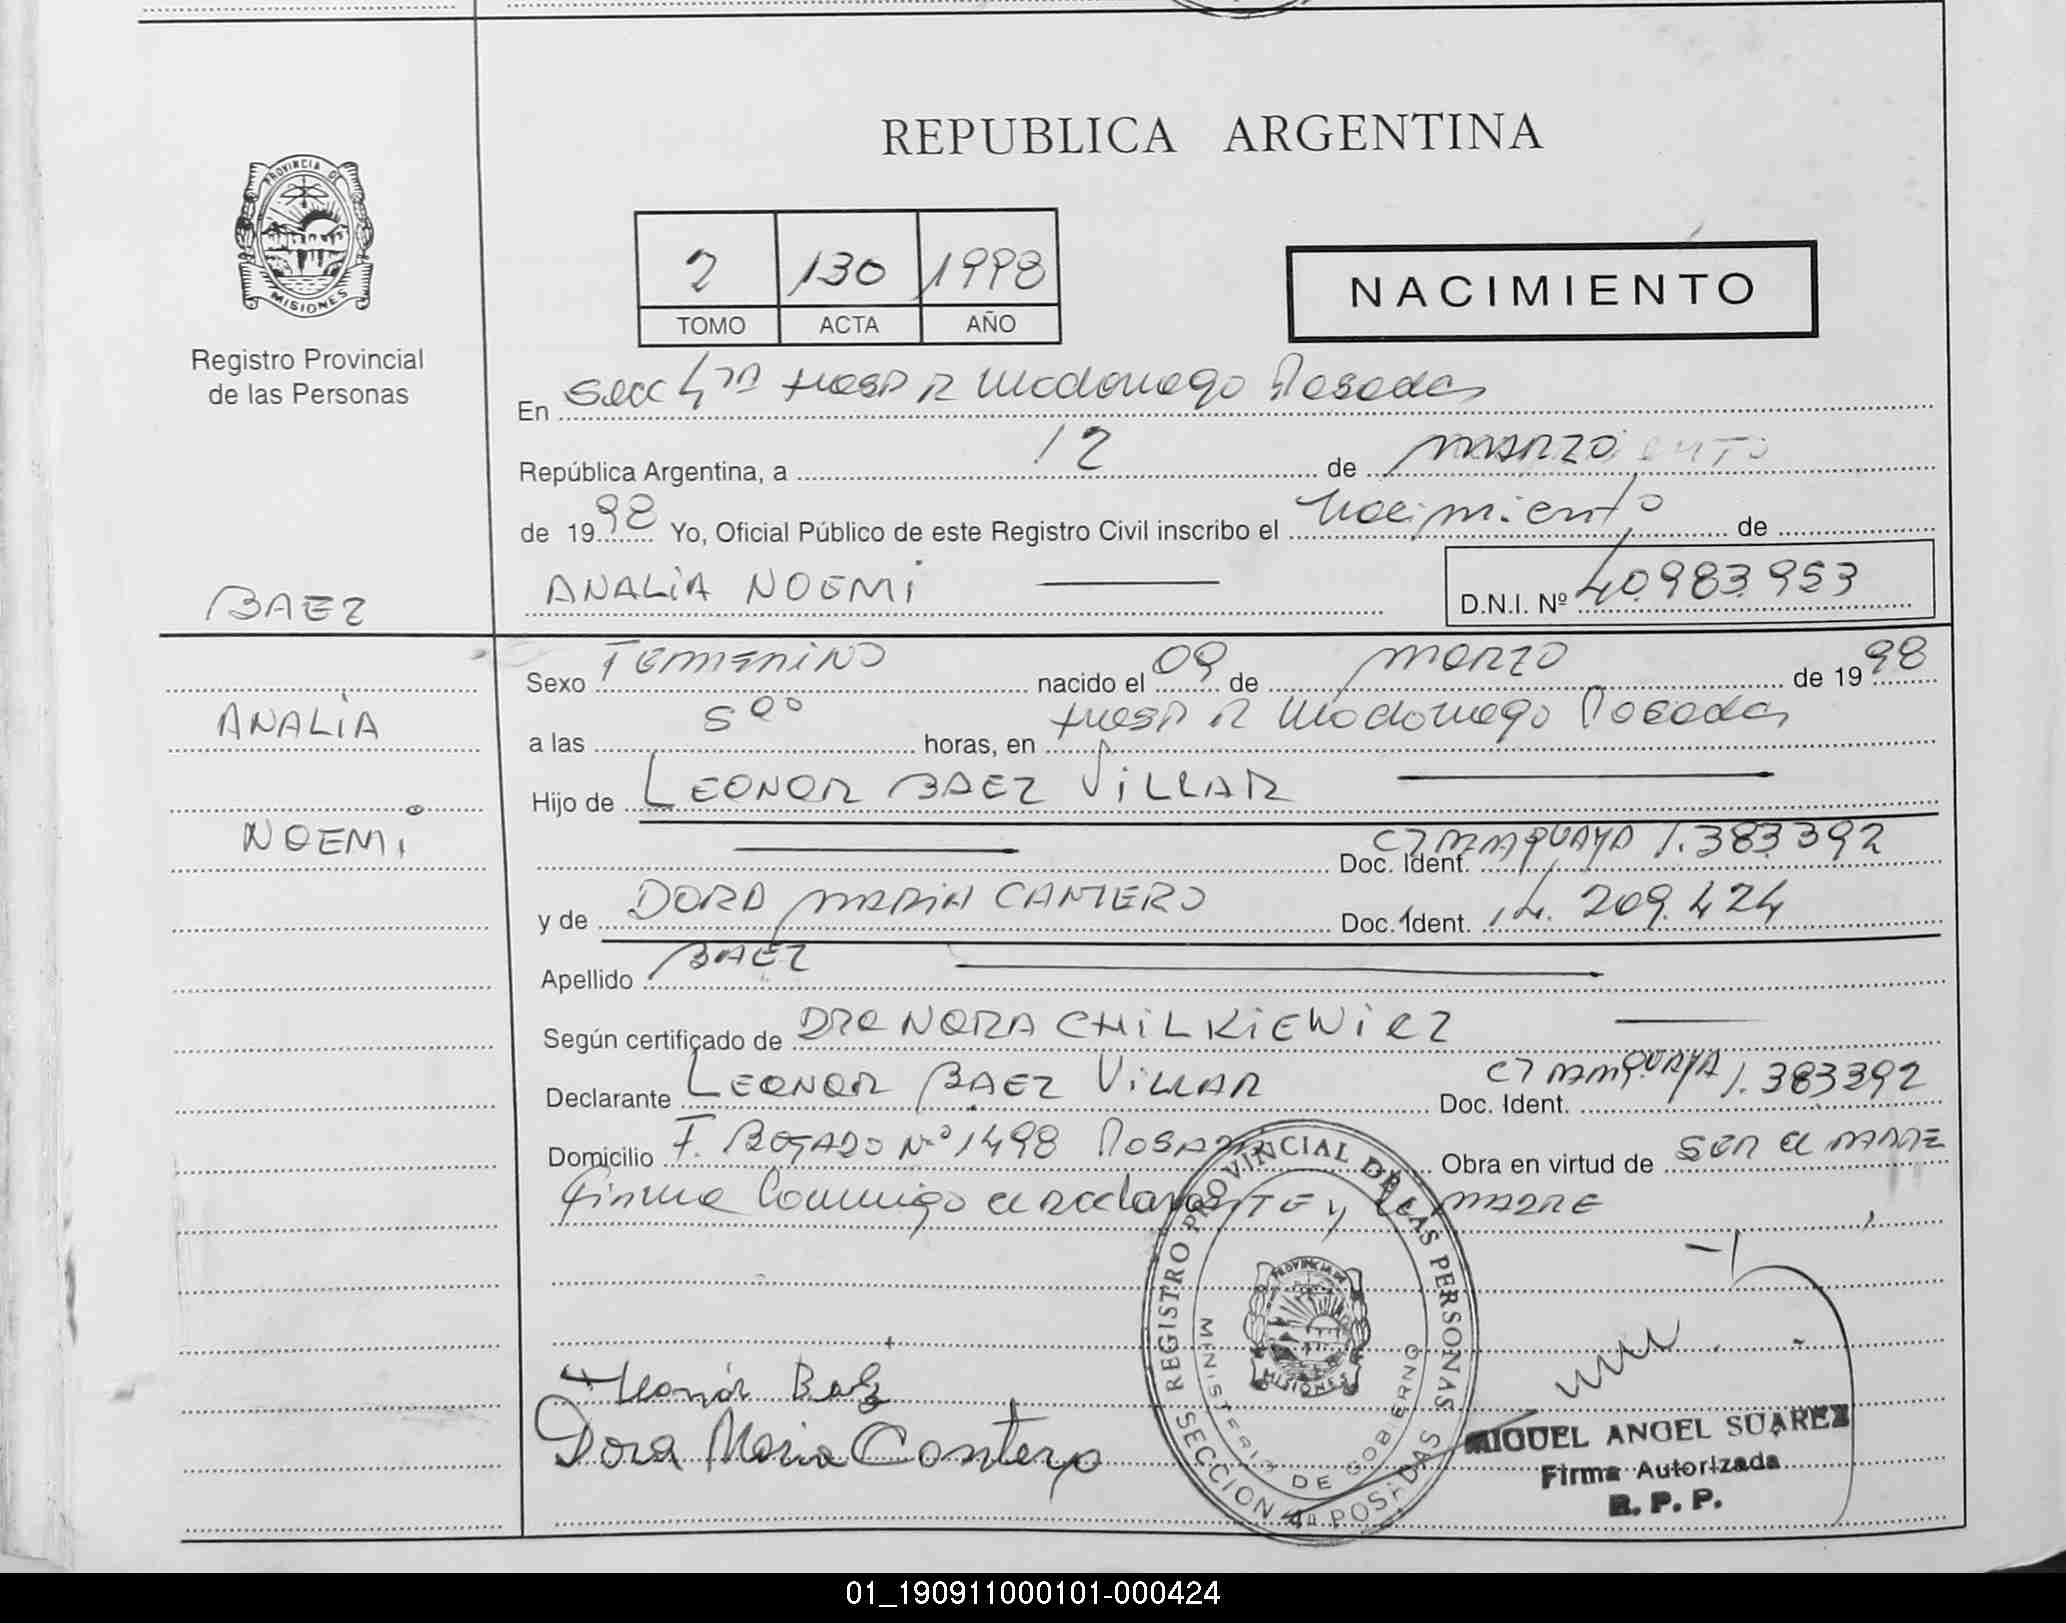 REPUBLICA ARGENTINA
PROVINCIA DE
MISIONES
Registro Provincial
de las Personas
2 130 1998
TOMO ACTA AÑO
NACIMIENTO
En Secc 4ta Hosp R Madariaga Posadas
República Argentina, a 12 de MARZO
de 1998 Yo, Oficial Público de este Registro Civil inscribo el Nacimiento de
BAEZ
ANALIA NOEMI
D.N.I. Nº 40.983.953
ANALIA
NOEMI
Sexo FEMENINO nacido el 09 de MARZO de 1998
a las 5 00 horas, en Hosp R Madariaga Posadas
Hijo de LEONOR BAEZ VILLAR
Doc. Ident. CI PARAGUAYA 1.383.392
y de DORA MARIA CANTERO Doc. Ident. 14.209.424
Apellido BAEZ
Según certificado de DRA NORA CHILKIEWICZ
Declarante LEONOR BAEZ VILLAR Doc. Ident. CI PARAGUAYA 1.383392
Domicilio F. BOGADO Nº 1498 POSADAS Obra en virtud de SER el PADRE
firma Conmigo el declarante y la MADRE
Leonor Baez
Dora Maria Cantero
REGISTRO PROVINCIAL DE LAS PERSONAS
MINISTERIO DE GOBIERNO
PROVINCIA DE
MISIONES
SECCION 4a POSADAS
MIGUEL ANGEL SUAREZ
Firma Autorizada
R. P. P.
01_190911000101-000424